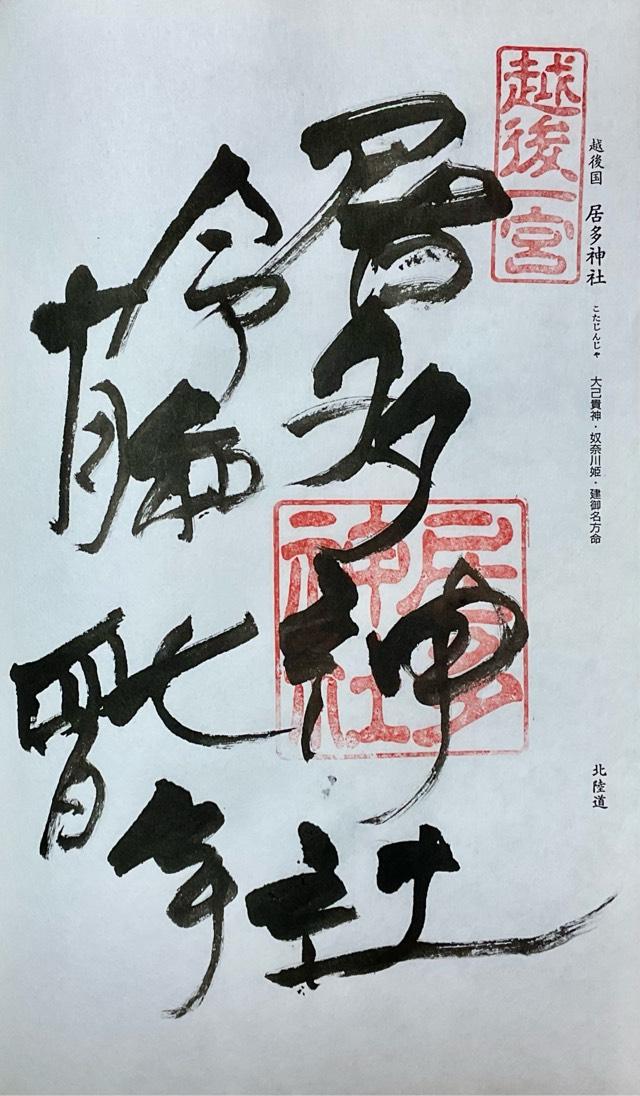 越後国 居多神社 こたじんじゃ 大己貴神・奴奈川姫・建御名方命 北陸道
越後一宮
居多神社
居多
神社
令和七年
十月四日